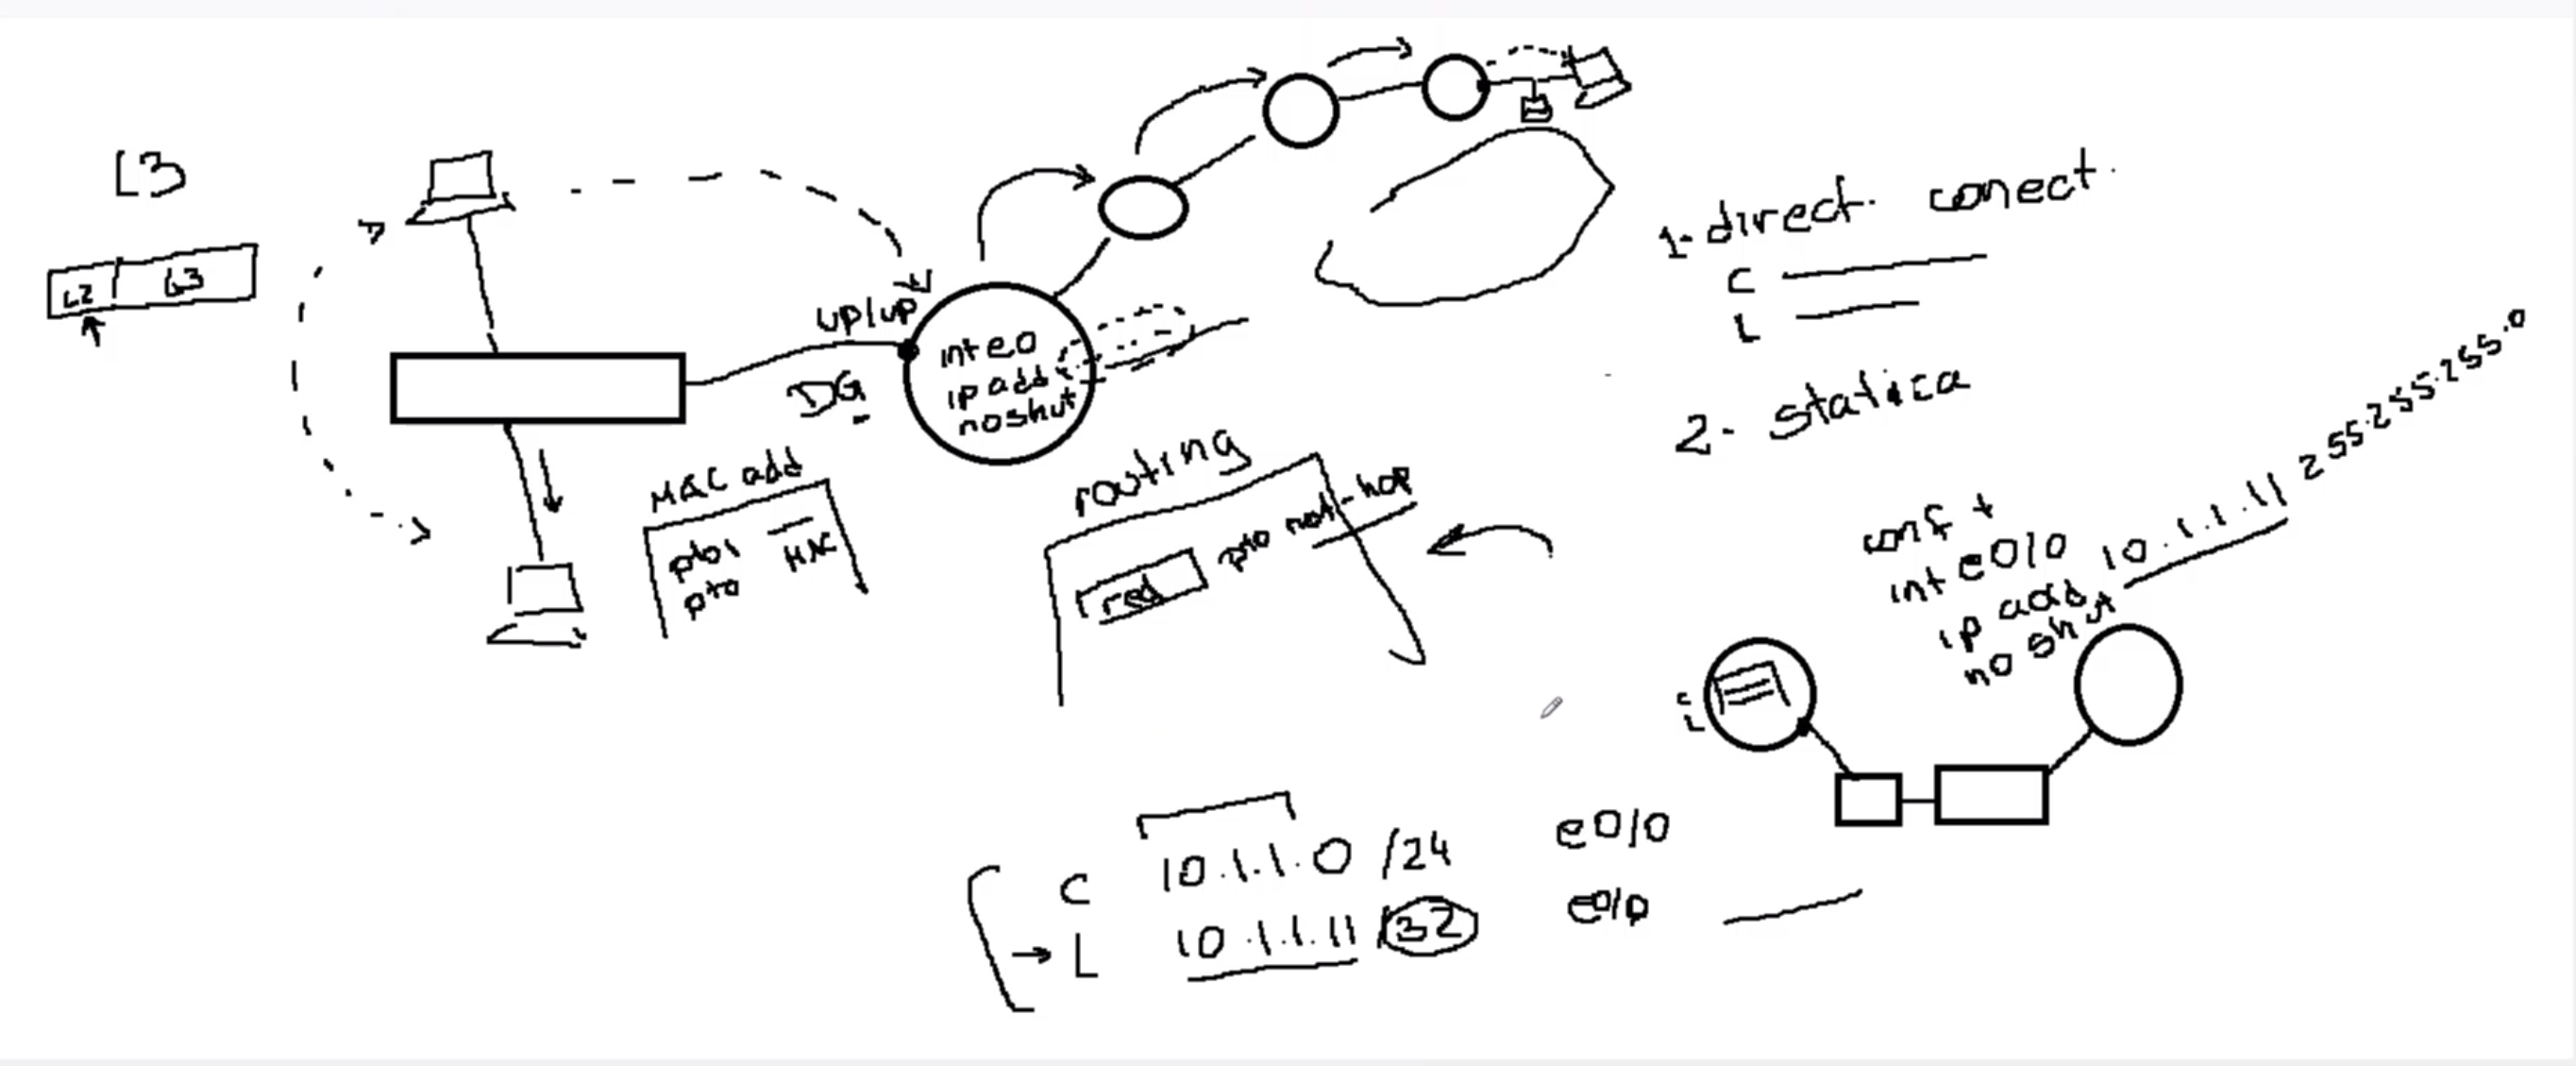 L3
L2 L3
up/up
DG
int e0
ip add
no shut
MAC add
pto1 MAC
pto
routing
red pto net-hop
1- direct. conect.
C
L
2- statica
conf t
int e0/0
ip add 10.1.1.11 255.255.255.0
no shut
C
L
C 10.1.1.0 /24 e0/0
L 10.1.1.11 /32 e0/0